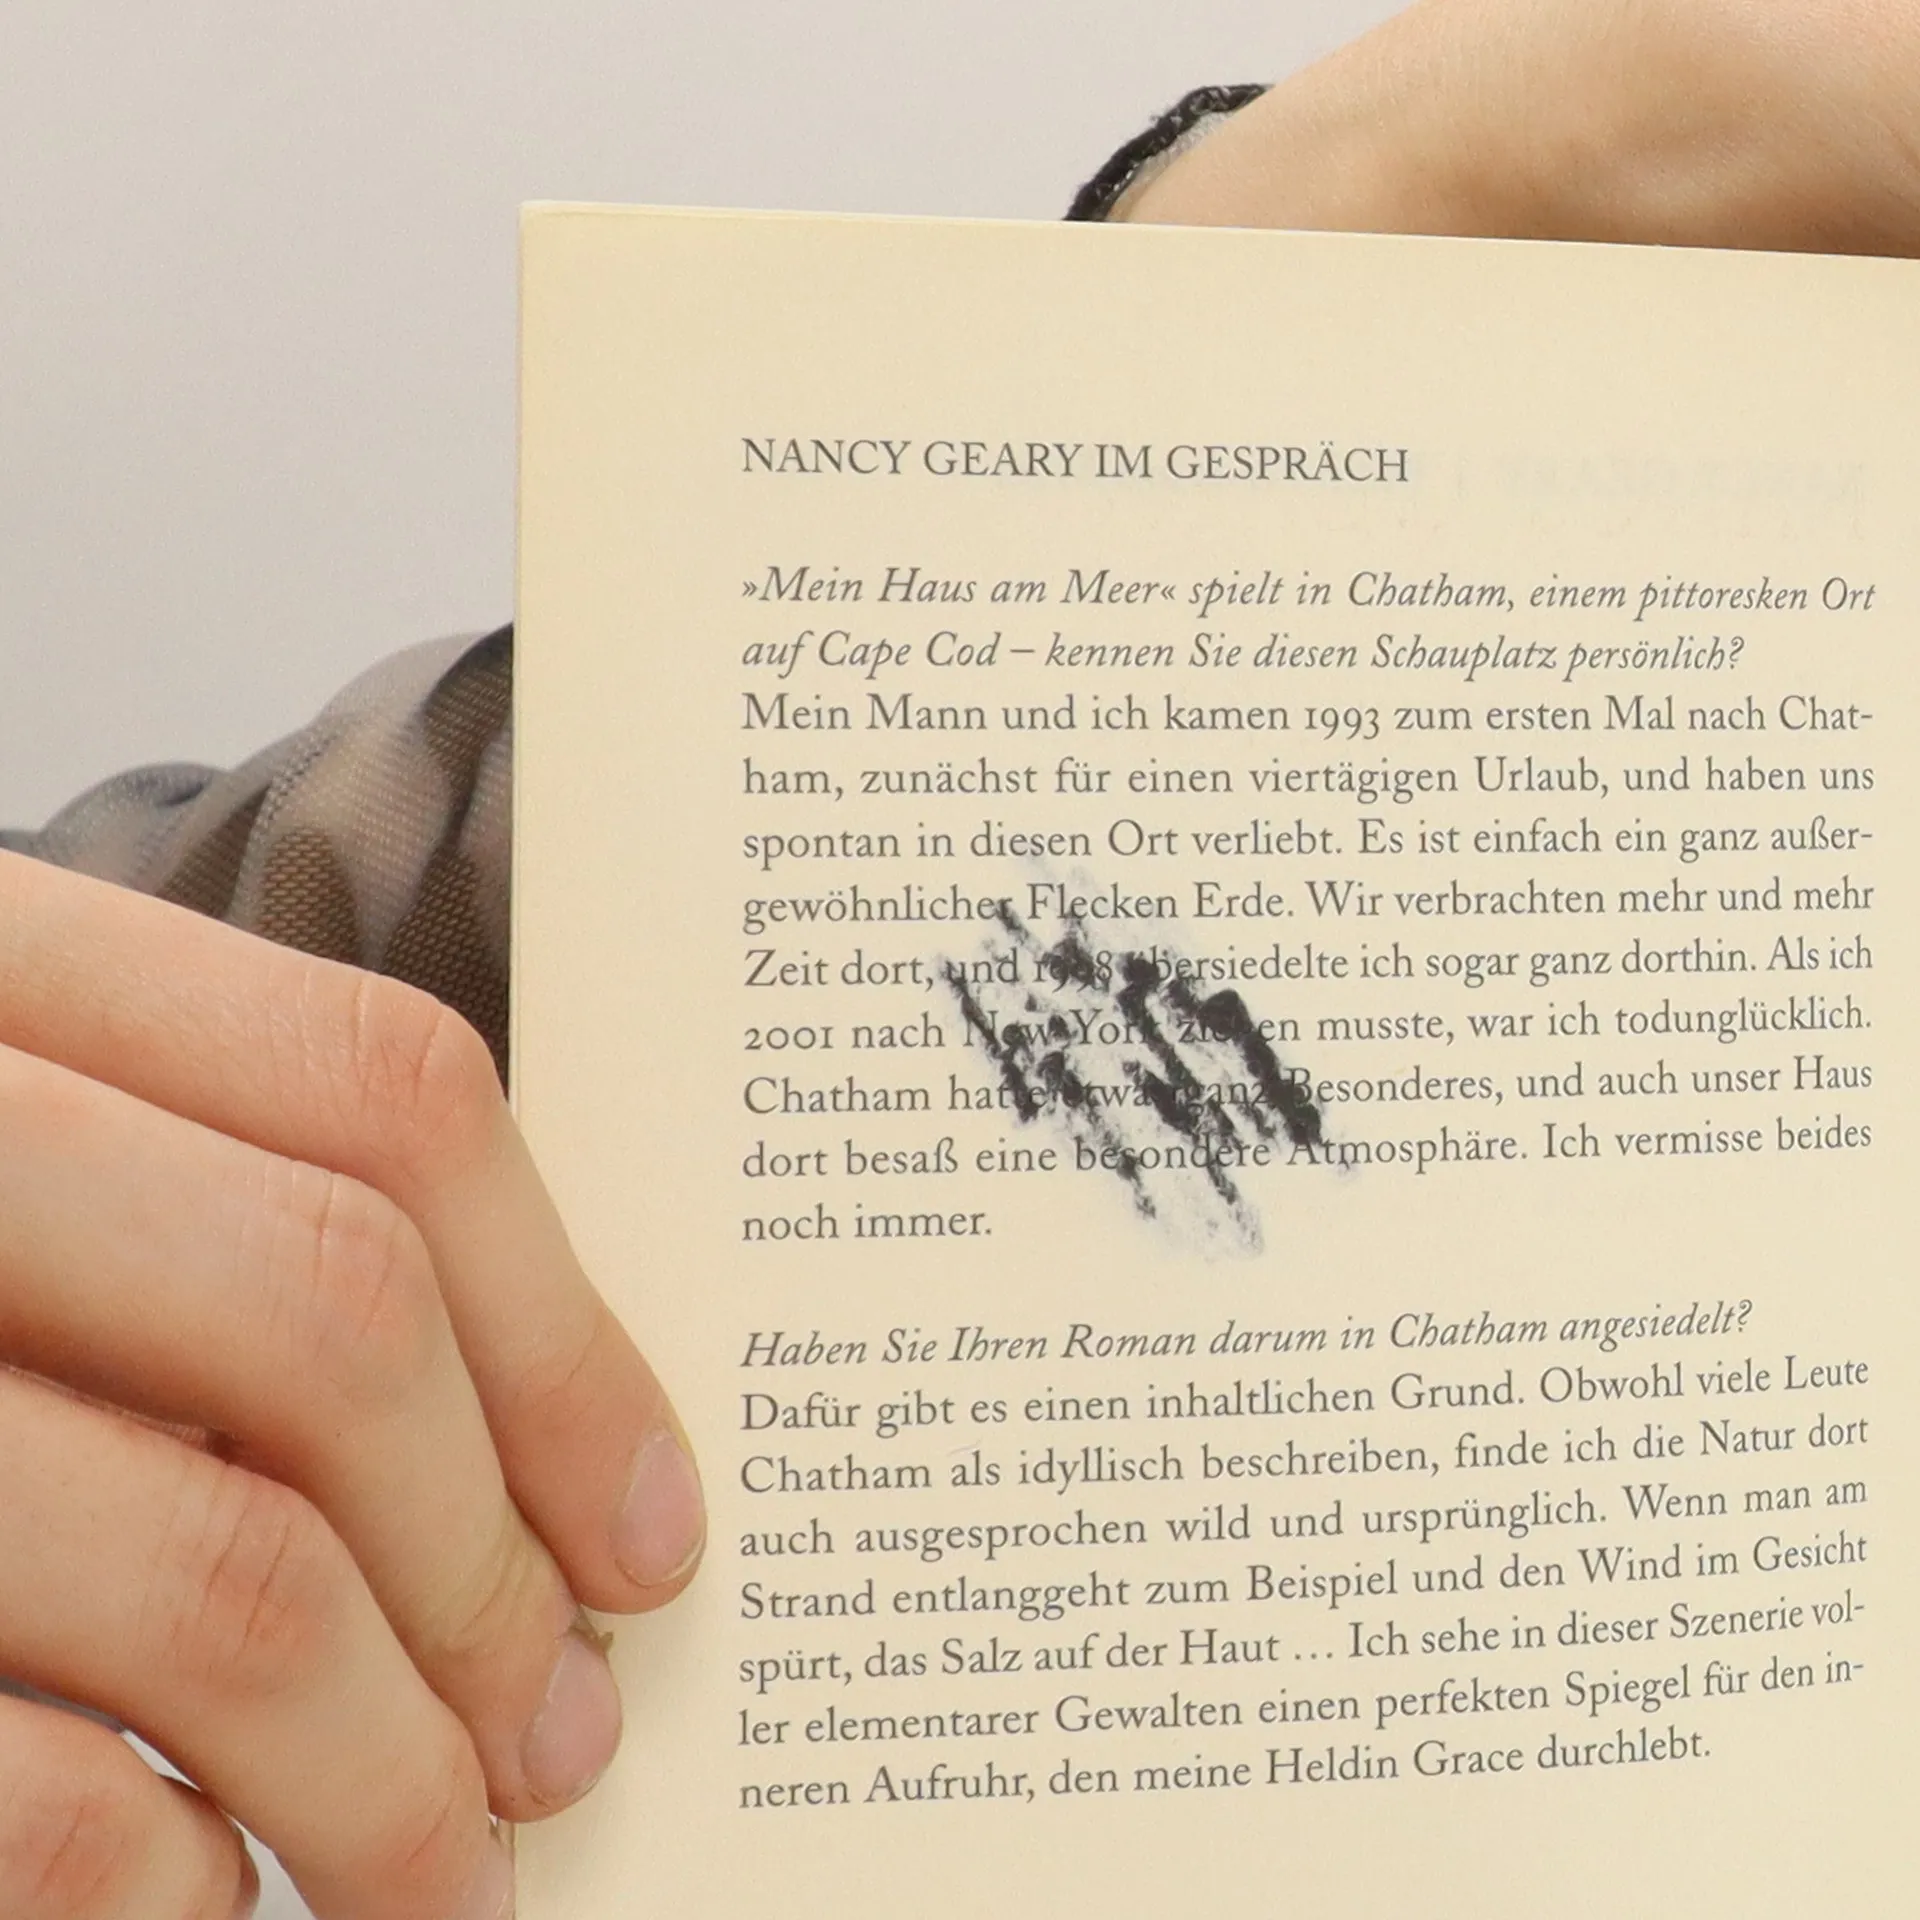 NANCY GEARY IM GESPRÄCH
»Mein Haus am Meer« spielt in Chatham, einem pittoresken Ort
auf Cape Cod – kennen Sie diesen Schauplatz persönlich?
Mein Mann und ich kamen 1993 zum ersten Mal nach Chat-
ham, zunächst für einen viertägigen Urlaub, und haben uns
spontan in diesen Ort verliebt. Es ist einfach ein ganz außer-
gewöhnlicher Flecken Erde. Wir verbrachten mehr und mehr
Zeit dort, und 1998 übersiedelte ich sogar ganz dorthin. Als ich
2001 nach New York ziehen musste, war ich todunglücklich.
Chatham hatte etwas ganz Besonderes, und auch unser Haus
dort besaß eine besondere Atmosphäre. Ich vermisse beides
noch immer.
Haben Sie Ihren Roman darum in Chatham angesiedelt?
Dafür gibt es einen inhaltlichen Grund. Obwohl viele Leute
Chatham als idyllisch beschreiben, finde ich die Natur dort
auch ausgesprochen wild und ursprünglich. Wenn man am
Strand entlanggeht zum Beispiel und den Wind im Gesicht
spürt, das Salz auf der Haut … Ich sehe in dieser Szenerie vol-
ler elementarer Gewalten einen perfekten Spiegel für den in-
neren Aufruhr, den meine Heldin Grace durchlebt.